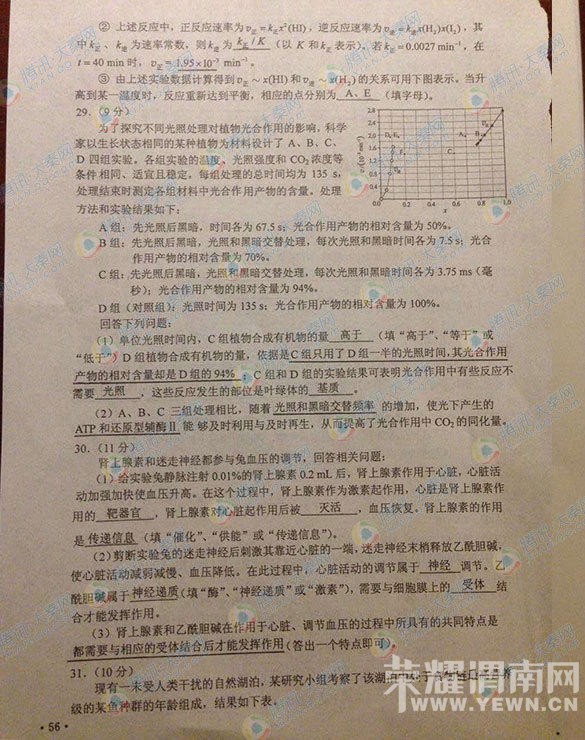 ② 上述反应中,正反应速率为v正=k正x²(HI),逆反应速率为v逆=k逆x(H₂)x(I₂),其
中k正、k逆为速率常数,则k逆为 k正/K (以K和k正表示)。若k正=0.0027 min⁻¹,在
t=40 min时,v正= 1.95×10⁻³ min⁻¹。
③ 由上述实验数据计算得到v正~x(HI)和v逆~x(H₂)的关系可用下图表示。当升
高到某一温度时,反应重新达到平衡,相应的点分别为 A、E (填字母)。
29.(9分)
为了探究不同光照处理对植物光合作用的影响,科学
家以生长状态相同的某种植物为材料设计了A、B、C、
D四组实验。各组实验的温度、光照强度和CO₂浓度等
条件相同、适宜且稳定,每组处理的总时间均为135 s,
处理结束时测定各组材料中光合作用产物的含量。处理
方法和实验结果如下:
2.8
2.4
2.0
1.6
1.2
0.8
0.4
0
0.2
0.4
0.6
0.8
1.0
x
A组:先光照后黑暗,时间各为67.5 s;光合作用产物的相对含量为50%。
B组:先光照后黑暗,光照和黑暗交替处理,每次光照和黑暗时间各为7.5 s;光合
作用产物的相对含量为70%。
C组:先光照后黑暗,光照和黑暗交替处理,每次光照和黑暗时间各为3.75 ms(毫
秒);光合作用产物的相对含量为94%。
D组(对照组):光照时间为135 s;光合作用产物的相对含量为100%。
回答下列问题:
(1)单位光照时间内,C组植物合成有机物的量 高于 (填“高于”、“等于”或
“低于”)D组植物合成有机物的量,依据是C组只用了D组一半的光照时间,其光合作用
产物的相对含量却是D组的94% ;C组和D组的实验结果可表明光合作用中有些反应不
需要 光照 ,这些反应发生的部位是叶绿体的 基质 。
(2)A、B、C三组处理相比,随着 光照和黑暗交替频率 的增加,使光下产生的
ATP和还原型辅酶Ⅱ 能够及时利用与及时再生,从而提高了光合作用中CO₂的同化量。
30.(11分)
肾上腺素和迷走神经都参与兔血压的调节,回答相关问题:
(1)给实验兔静脉注射0.01%的肾上腺素0.2 mL后,肾上腺素作用于心脏,心脏活
动加强加快使血压升高。在这个过程中,肾上腺素作为激素起作用,心脏是肾上腺素作
用的 靶器官 ,肾上腺素对心脏起作用后被 灭活 ,血压恢复。肾上腺素的作用
是 传递信息 (填“催化”、“供能”或“传递信息”)。
(2)剪断实验兔的迷走神经后刺激其靠近心脏的一端,迷走神经末梢释放乙酰胆碱,
使心脏活动减弱减慢、血压降低。在此过程中,心脏活动的调节属于 神经 调节。乙
酰胆碱属于 神经递质 (填“酶”、“神经递质”或“激素”),需要与细胞膜上的 受体 结
合才能发挥作用。
(3)肾上腺素和乙酰胆碱在作用于心脏、调节血压的过程中所具有的共同特点是
都需要与相应的受体结合后才能发挥作用(答出一个特点即可)。
31.(10分)
现有一未受人类干扰的自然湖泊,某研究小组考察了该湖
级的某鱼种群的年龄组成,结果如下表。
·56·
荣耀渭南网
WWW.YEWN.CN
腾讯·大秦网